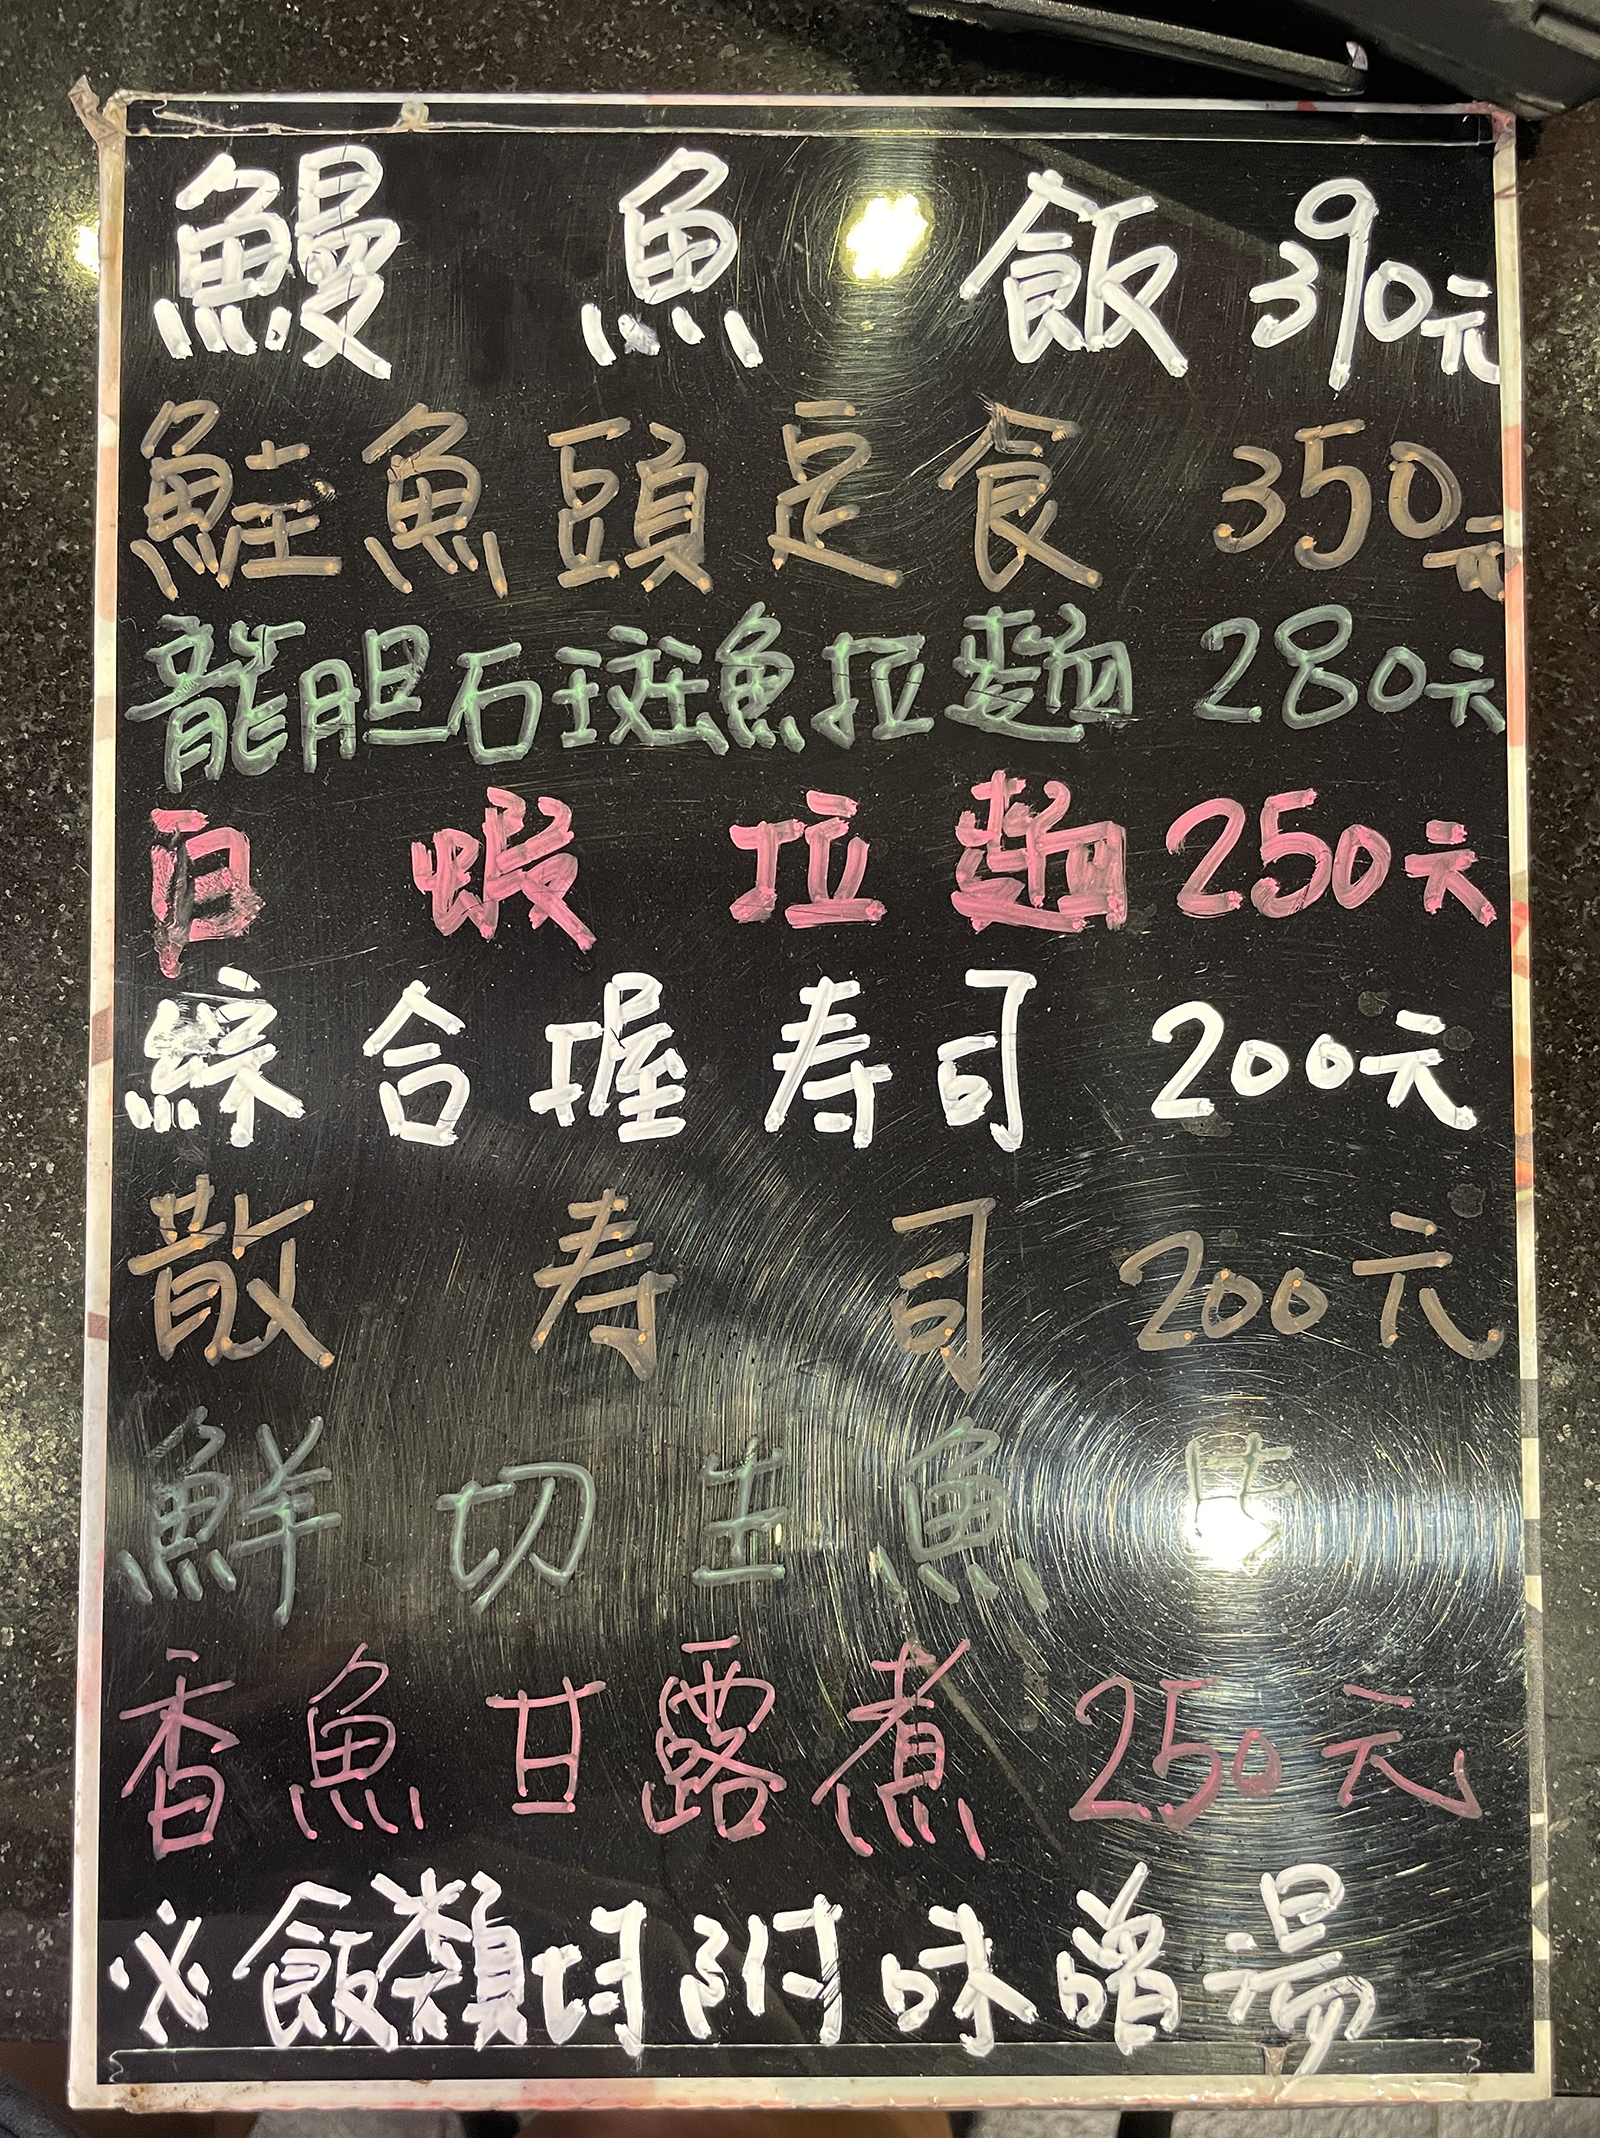 鰻魚飯 390元
鮭魚頭定食 350元
龍胆石斑魚拉麵 280元
白蝦拉麵 250元
綜合握寿司 200元
散寿司 200元
鮮切生魚
香魚甘露煮 250元
※飯類均附味噌湯